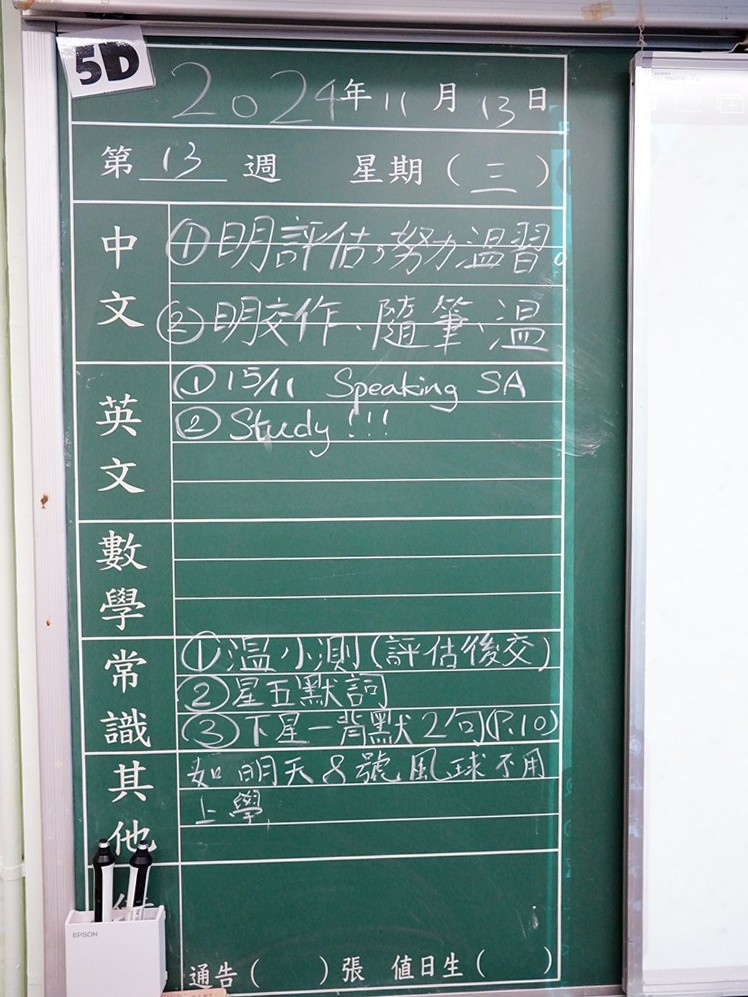 5D
2024年11月13日
第13週 星期(三)
中文
①明評估,努力溫習。
②明交作、隨筆、溫
英文
①15/11 Speaking SA
②Study!!!
數學
常識
①溫小測(評估後交)
②星五默詞
③下星一背默2句(P.10)
其他
如明天8號風球不用
上學
EPSON
通告( )張 值日生( )